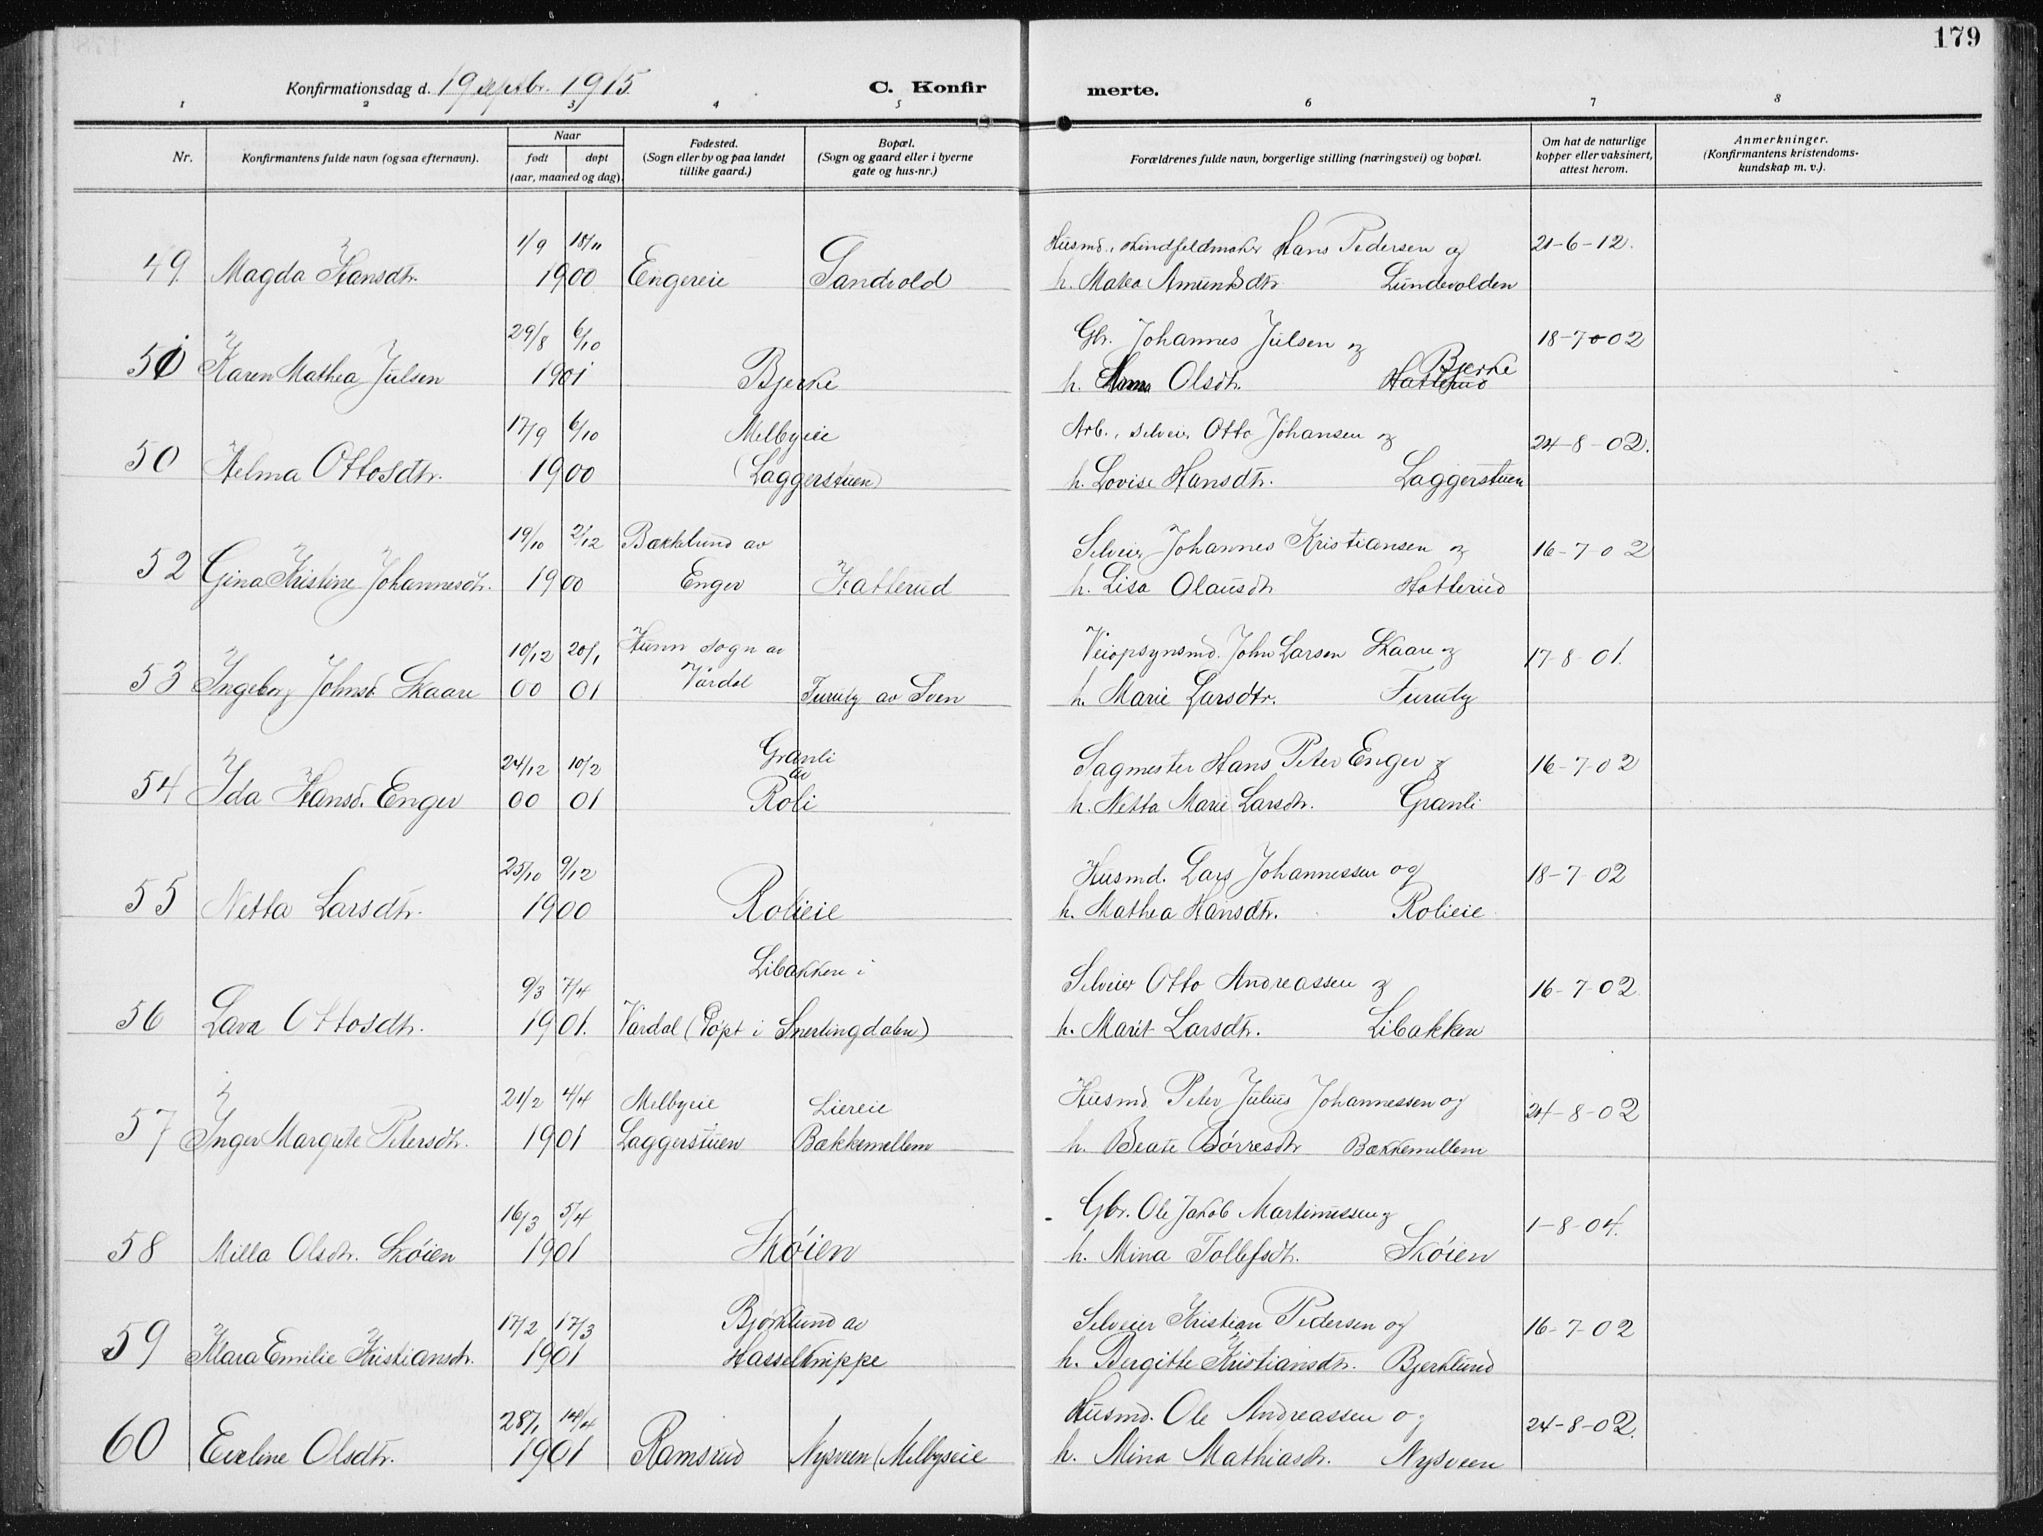 179
Konfirmationsdag d. 19 septbr. 1915
C. Konfir merte.
1 2 3 4 5 6 7 8
Nr.
Konfirmantens fulde navn (ogsaa efternavn).
Naar
født døpt
(aar, maaned og dag).
Fødested.
(Sogn eller by og paa landet
tillike gaard.)
Bopæl.
(Sogn og gaard eller i byerne
gate og hus-nr.)
Forældrenes fulde navn, borgerlige stilling (næringsvei) og bopæl.
Om hat de naturlige
kopper eller vaksinert,
attest herom.
Anmerkninger.
(Konfirmantens kristendoms-
kundskap m. v.).
1/9 18/11 Husmd. Hans Pedersen og 21-6-12.
49. Magda Hansdtr. 1900 Engereie Sandvold h. Matea Amundsdtr Lundevolden
29/8 6/10 Gbr. Johannes Julsen og 18-7-02
51 Karen Mathea Julsen 1901 Bjerke h. Olsdtr. Hatterud Bjerke
17/9 6/10 Melbyeie Arb., selvei. Otto Johansen og 24-8-02.
50 Helma Ottosdtr. 1900 (Laggerstuen) h. Lovise Hansdtr. Laggerstuen
19/10 2/12 Bakklund av Selveier Johannes Kristiansen og 16-7-02
52 Gina Kristine Johannesdtr. 1900 Enger Hatterud h. Lisa Olausdtr Hatterud
10/12 20/1 Hunn sogn av Veiopsynsmd. John Larsen Skaare og 17-8-01.
53 Ingeborg Johnsd. Skaare 00 01 Vardal Furuly av Sven h. Marie Larsdtr. Furuly
24/12 10/2 Granli av Sagmester Hans Peter Enger og 16-7-02
54 Ida Hansd. Enger 00 01 Roli h. Netta Marie Larsdtr. Granli
25/10 9/12 Husmd. Lars Johannessen og 18-7-02
55 Netta Larsdtr. 1900 Rolieie h. Mathea Hansdtr. Rolieie
9/3 7/4 Libakken i Selveier Otto Andreassen og 16-7-02
56 Lara Ottosdtr. 1901. Vardal (Døpt i Snertingdalen) h. Marit Larsdtr. Libakken
21/2 4/4 Melbyeie Liereie Husmd. Peter Julius Johannessen og 24-8-02
57 Inger Margrete Petersdtr. 1901 Laggerstuen Bakkemellem h. Beate Børresdtr Bakkemellem
16/3 5/4 Gbr. Ole Jakob Martinussen og 1-8-04.
58 Milla Olsdtr. Skøien 1901 Skøien h. Mina Tollefsdtr. Skøien
17/2 17/3 Bjørklund av Selveier Kristian Pedersen og 16-7-02
59 Klara Emilie Kristiansdtr. 1901 Hasselknippe h. Bergitte Kristiansdtr. Bjerklund
28/1 14/4 Husmd. Ole Andreassen og 24-8-02.
60 Eveline Olsdtr. 1901 Ramsrud Nysveen (Melbyeie h. Mina Mathiasdtr. Nysveen